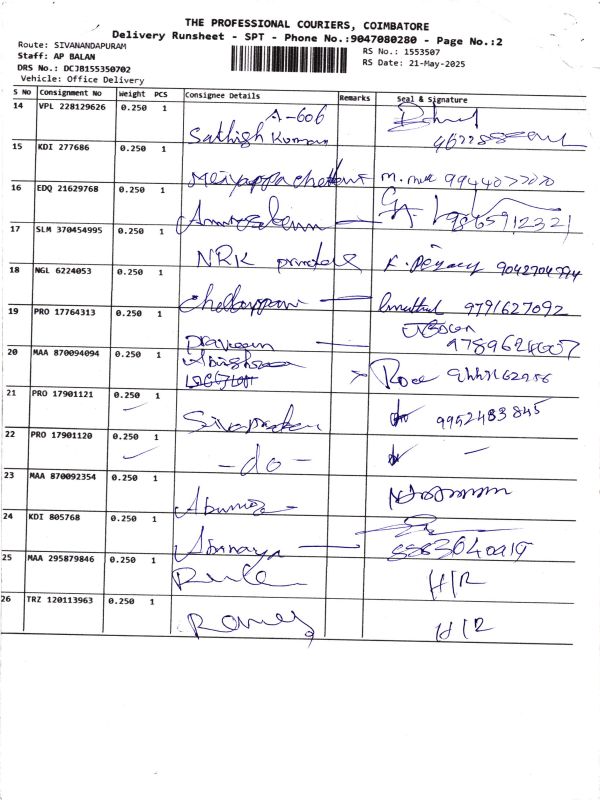 THE PROFESSIONAL COURIERS, COIMBATORE
Delivery Runsheet - SPT - Phone No.:9047080280 - Page No.:2
Route: SIVANANDAPURAM
Staff: AP BALAN
DRS No.: DCJ8155350702
Vehicle: Office Delivery
RS No.: 1553507
RS Date: 21-May-2025
S No Consignment No Weight PCS Consignee Details Remarks Seal & Signature
14 VPL 228129626 0.250 1 A-606
Sathish Kumar
15 KDI 277686 0.250 1
Meiyappa 9944077070
16 EDQ 21629768 0.250 1
9865912321
17 SLM 370454995 0.250 1
NRK 9042704794
18 NGL 6224053 0.250 1
Chellappan 9791627092
19 PRO 17764313 0.250 1
Praveen
20 MAA 870094094 0.250 1
21 PRO 17901121 0.250 1
9952483845
22 PRO 17901120 0.250 1
-do- -
23 MAA 870092354 0.250 1
24 KDI 805768 0.250 1
25 MAA 295879846 0.250 1
H/R
26 TRZ 120113963 0.250 1
H/R